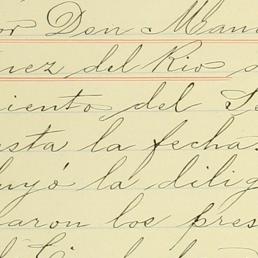 or Don Manu
nez del Rio
miento del Se
asta la fecha
buyó la dilig
aron los pres